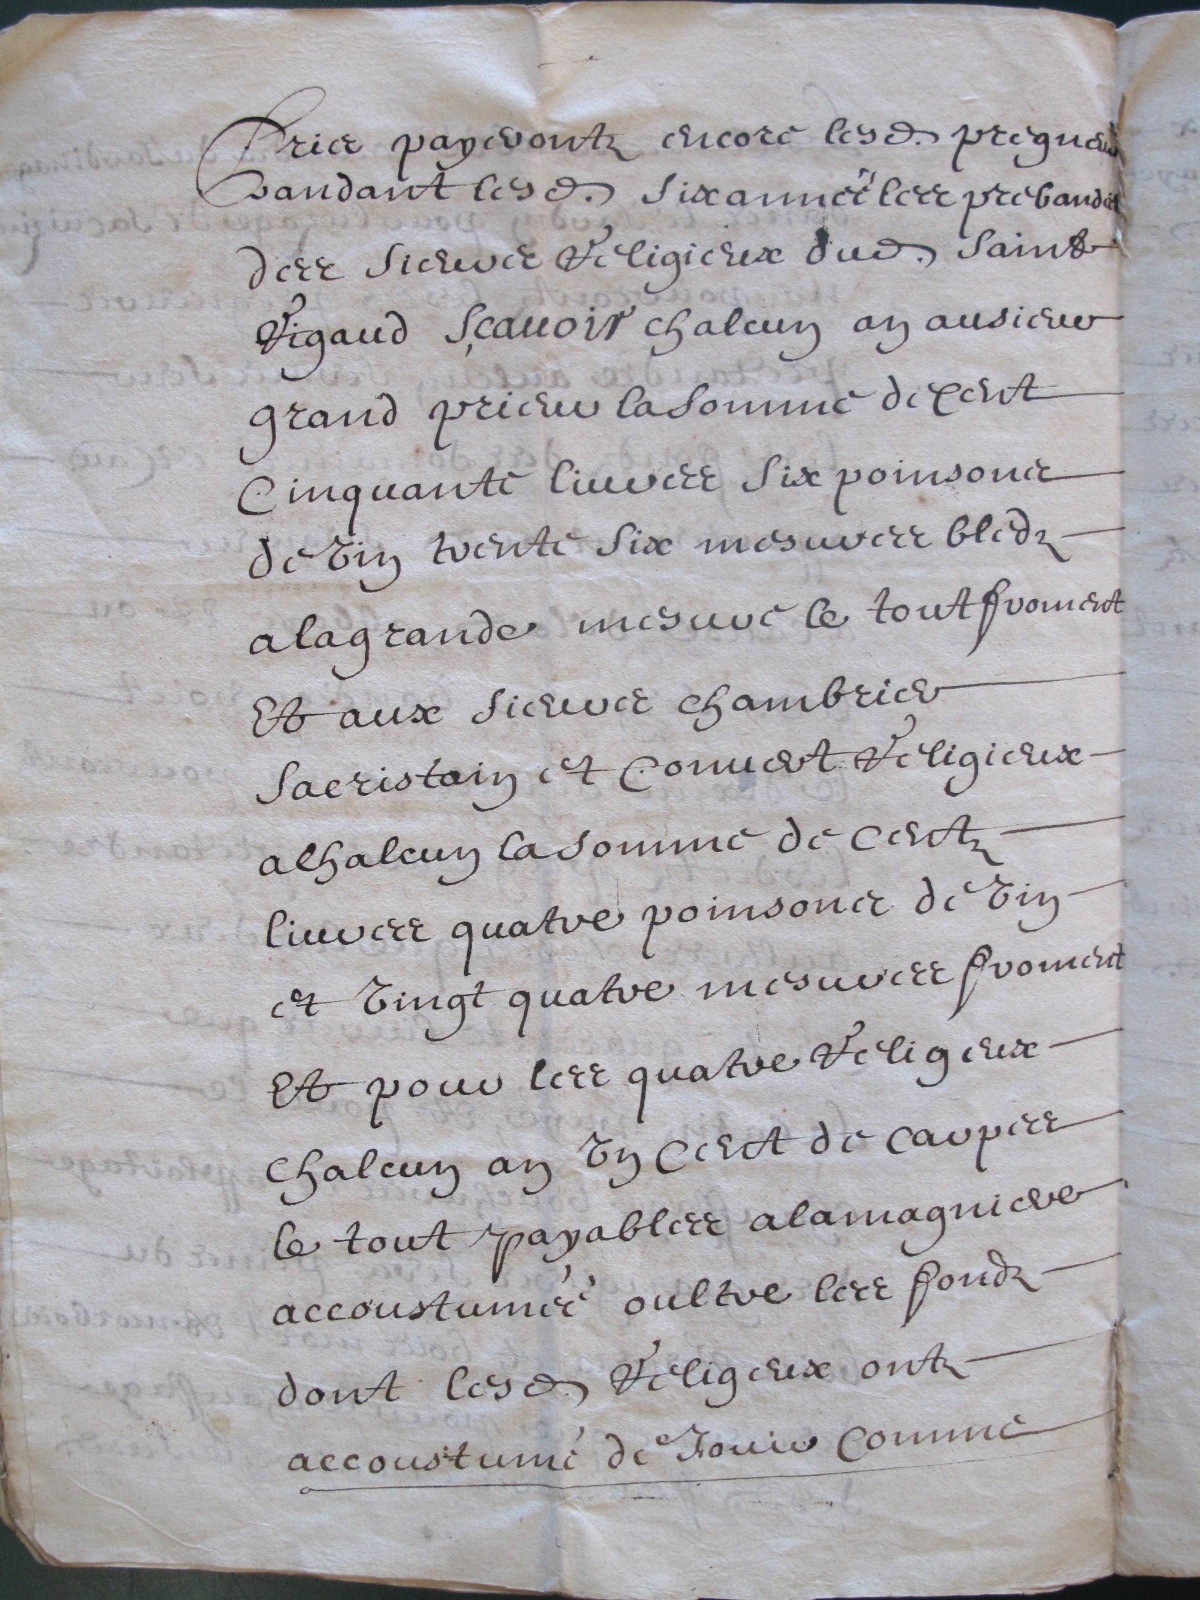 Prier payeront encore lesd. pregneurs
Pandant lesd. six années les prebandes
des sieurs Religieux dud. Saint
Rigaud Sçauoir chascun an ausieur
grand prieur la somme de cent
Cinquante liures six poinsons
de vin trente six mesures bledz
a la grande mesure le tout froment
Et aux sieurs chambrier
Sacristain et Conuert Religieux
a chascun la somme de centz
liures quatre poinsons de vin
et vingt quatre mesures froment
Et pour les quatre Religeux
chascun an vn Cent de carpes
le tout payables a la magniere
accoustumée oultre les fondz
dont lesd. Religeux ontz
accoustumé de Jouir Comme